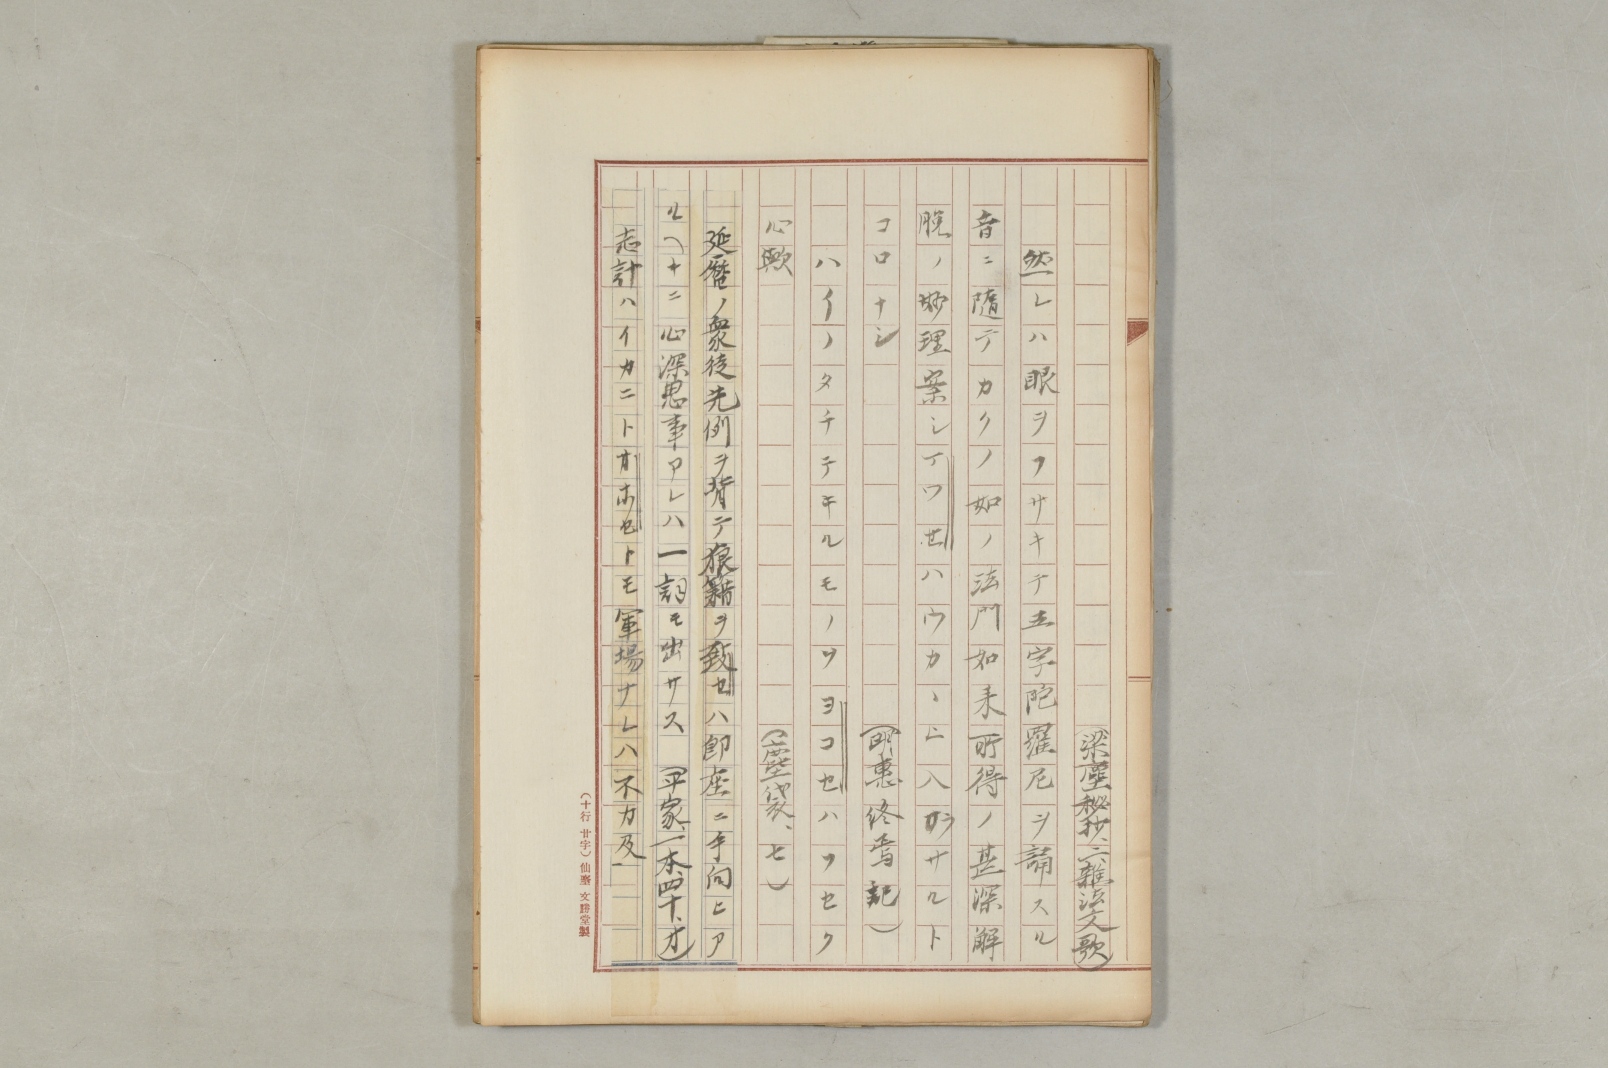 (梁塵秘抄、二、雑法文歌)
然レハ眼ヲフサキテ五字陀羅尼ヲ誦スル
音ニ隨テカクノ如ノ法門如来所得ノ甚深解
脱ノ妙理案シイワセハウカヽヒ入カラサルト
コロナシ (明惠終焉記)
ハイノタチテキルモノヲヨコセハヲセク
心歟 (塵袋、七)
延暦ノ衆徒先例ヲ背テ狼籍ヲ致セハ即座ニ手向ヒア
ルヘキニ心深思事アレハ一詞モ出サス (平家、一本、四十、オ)
志計ハイカニトオホセトモ軍場ナレハ不力及
(十行 廿字) 仙臺 文勝堂製